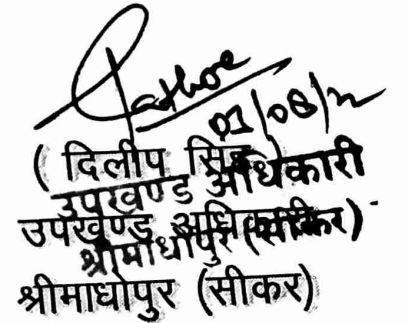 01/08/
( दिलीप सिंह
उपखण्ड अधिकारी
उपखण्ड अधिकारी
श्रीमाधोपुर (सीकर)
श्रीमाधोपुर (सीकर)